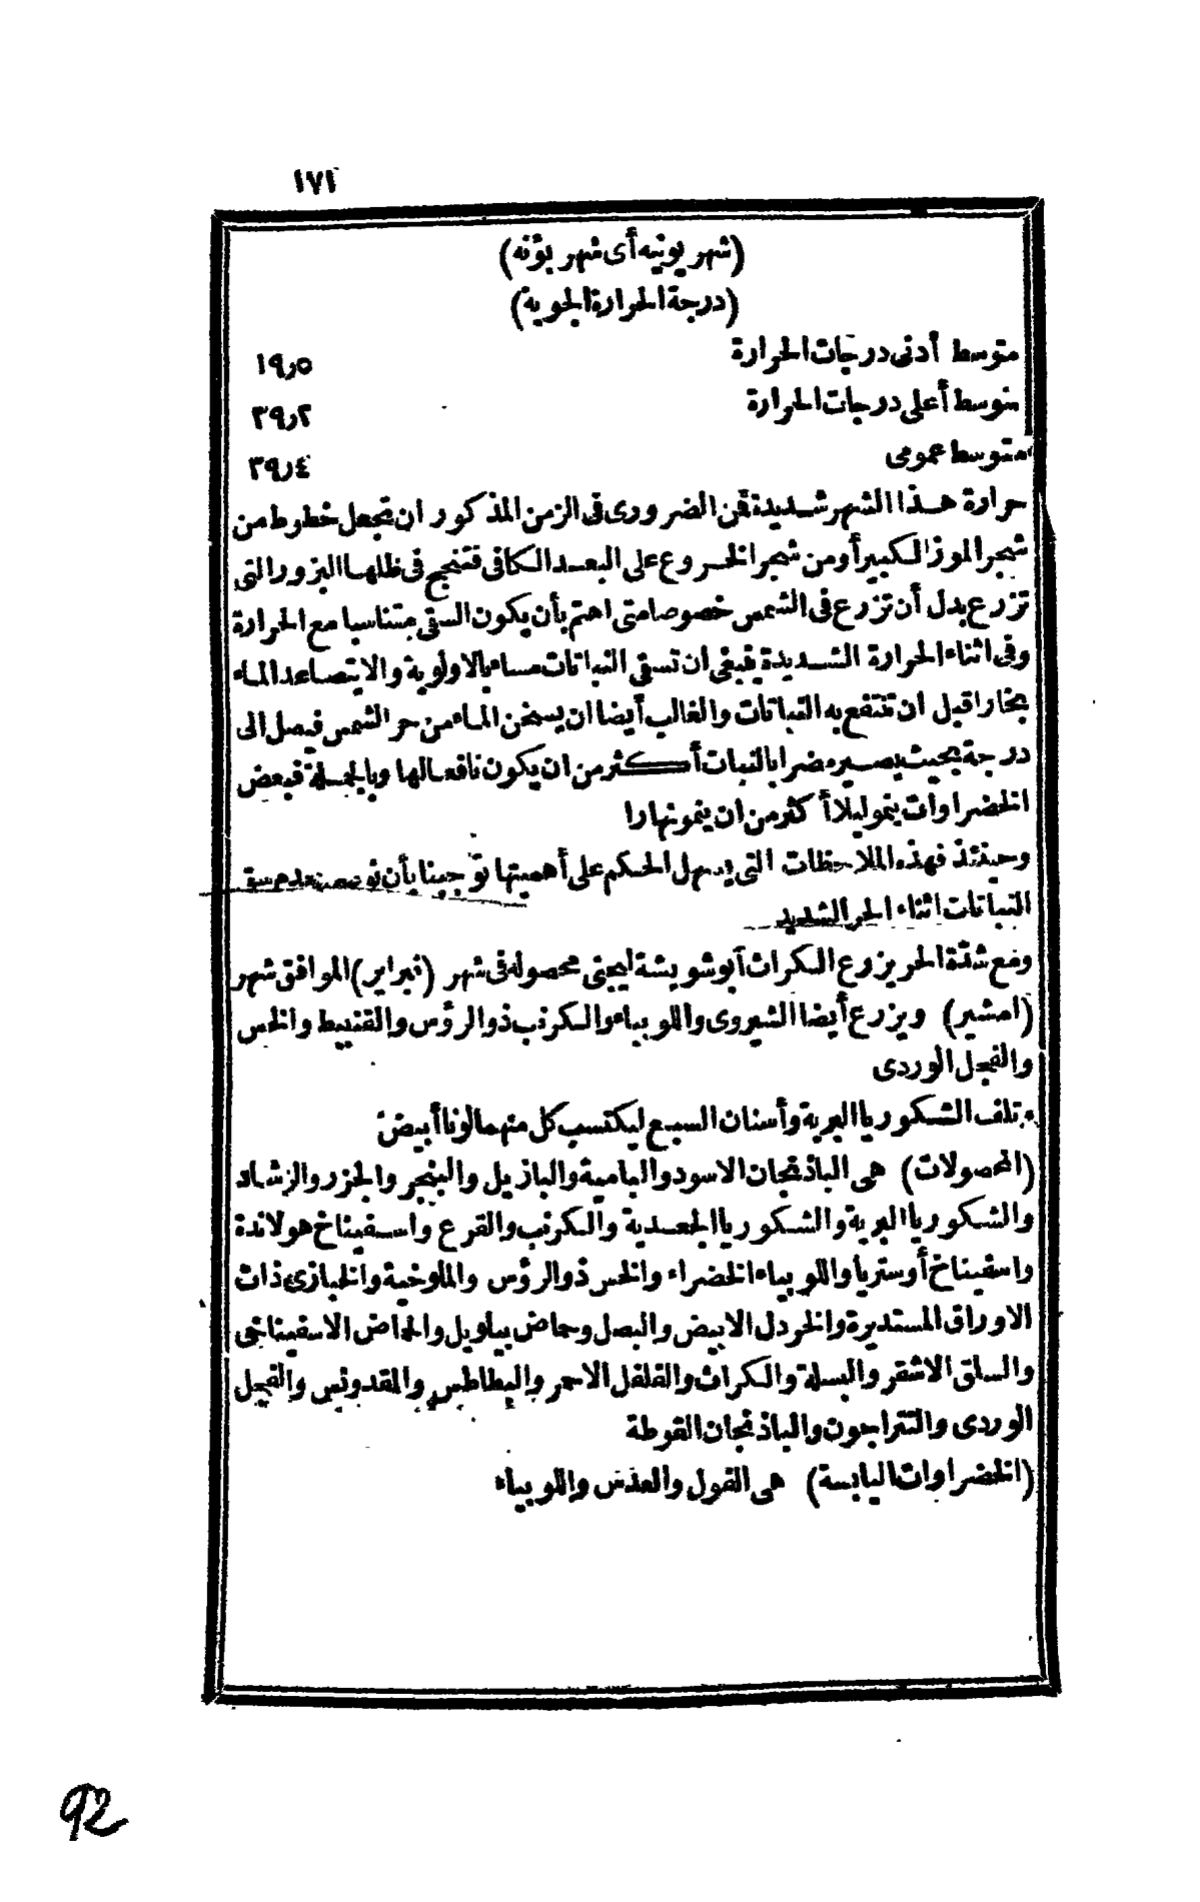 ١٧١
(شهر يونيه أى شهر بؤنه)
(درجة الحرارة الجوية)
متوسط أدنى درجات الحرارة ١٩٫٥
متوسط أعلى درجات الحرارة ٣٩٫٢
متوسط عمومى ٢٩٫٤
حرارة هذا الشهر شديدة فمن الضرورى فى الزمن المذكور ان تجعل خطوط من
شجر الموز الكبير أو من شجر الخروع على البعد الكافى فتنجح فى ظلها البزور التى
تزرع بدل أن تزرع فى الشمس خصوصا متى اهتم بأن يكون السقى متناسبا مع الحرارة
وفى اثناء الحرارة الشديدة ينبغى ان تسقى النباتات مساء بالاولوية والا يتصاعد الماء
بخارا قبل ان تنتفع به النباتات والغالب أيضا ان يسخن الماء من حر الشمس فيصل الى
درجة بحيث يصير مضرا بالنبات أكثر من ان يكون نافعا لها وبالجملة فبعض
الخضراوات ينمو ليلا أكثر من ان ينمو نهارا
وحينئذ فهذه الملاحظات التى يسهل الحكم على أهميتها توجبنا بأن نوصى بعدم سقى
النباتات اثناء الحر الشديد
ومع شدة الحر يزرع الكراث أبوشويشة ليجنى محصوله فى شهر (فبراير) الموافق شهر
(امشير) ويزرع أيضا الشيروى واللوبياء والكرنب ذو الرؤس والقنبيط والخس
والفجل الوردى
وتلف الشكوريا البرية وأسنان السبع ليكتسب كل منهما لونا أبيض
(المحصولات) هى الباذنجان الاسود والبامية والبازيل والبنجر والجزر والرشاد
والشكوريا البرية والشكوريا الجعدية والكرنب والقرع واسفيناخ هولاندة
واسفيناخ أوستريا واللوبياء الخضراء والخس ذو الرؤس والملوخية والخبازى ذات
الاوراق المستديرة والخردل الابيض والبصل وحماض بيلويل والحماض الاسفيناخى
والسلق الاشقر والبسلة والكراث والفلفل الاحمر والبطاطس والمقدونس والفجل
الوردى والتتراجون والباذنجان القوطة
(الخضراوات اليابسة) هى الفول والعدس واللوبياء
92